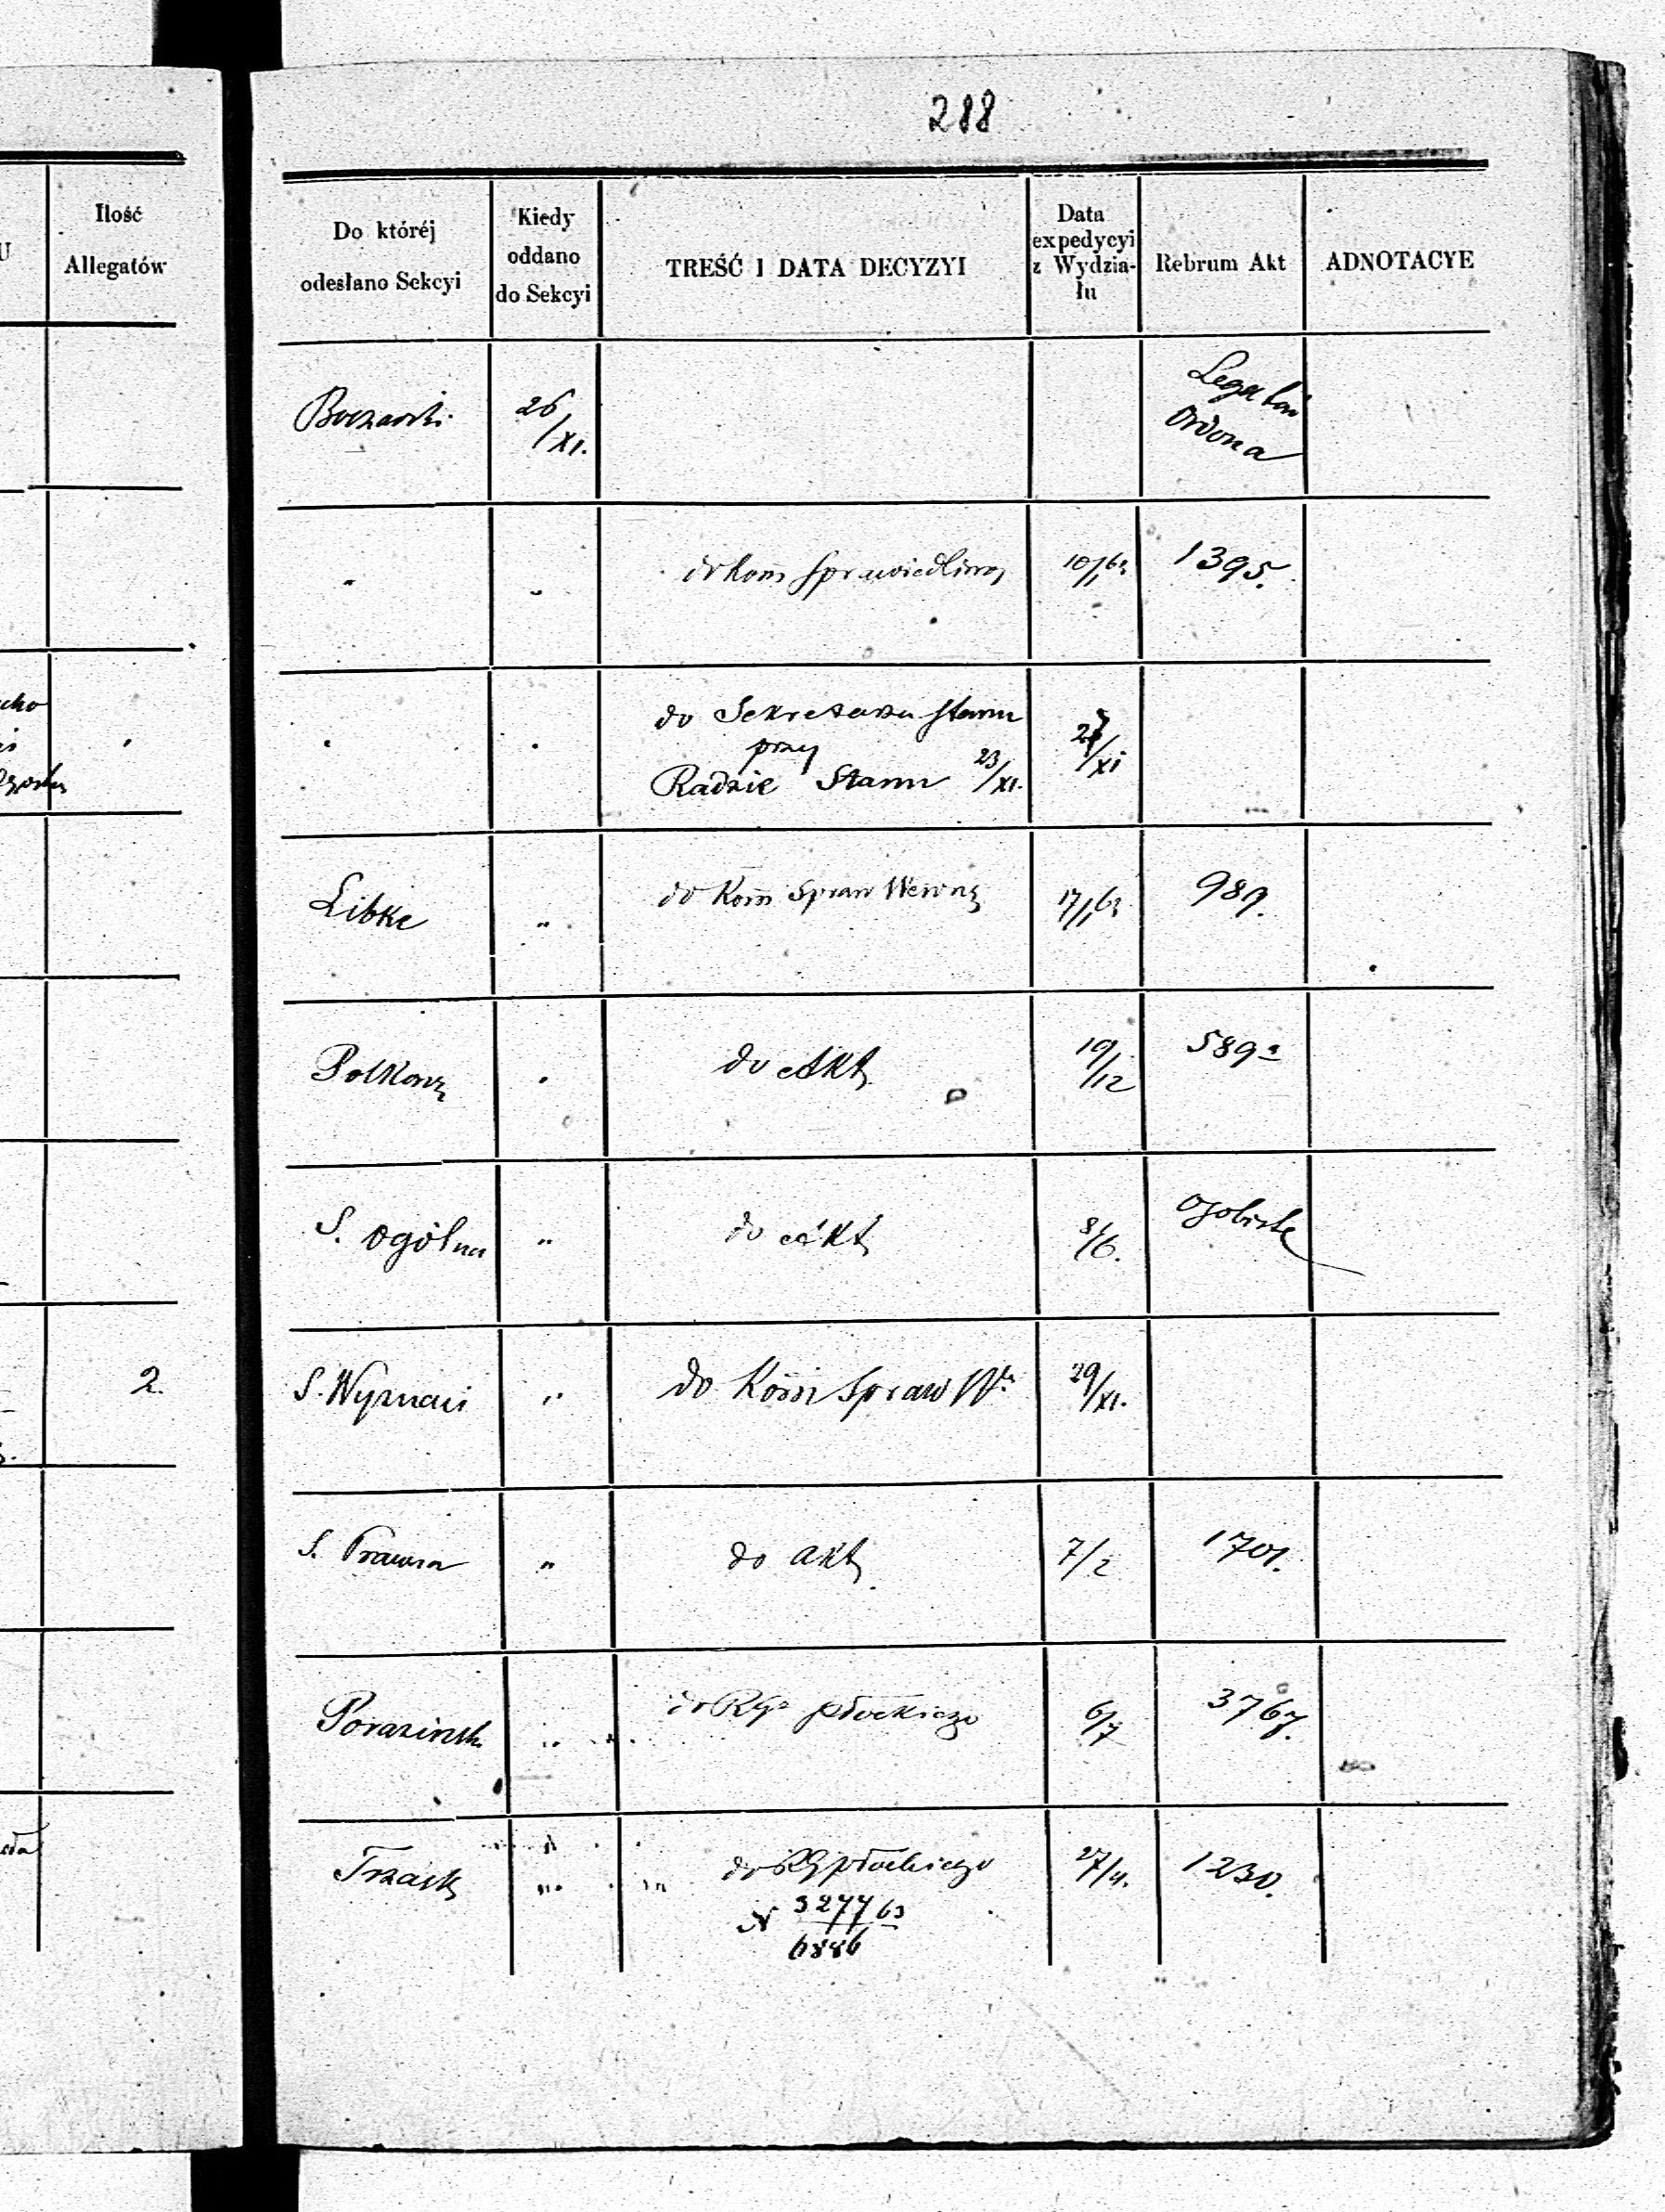 288
Ilość
Allegatów
Do któréj
odesłano Sekcyi
Kiedy
oddano
do Sekcyi
TREŚĆ I DATA DECYZYI
Data
expedycyi
z Wydzia-
łu
Rebrum Akt
ADNOTACYE
26/XI.
Ordona
do Kom Sprawiedliwoś
1395.
do Sekretarza Stanu
przy
Radzie Stanu 23/XI.
Libke
"
do Kom Spraw Wewnę
17/1 63
989.
do Akt
19/12
589a
S. Ogólna
"
do Akt
8/6.
Osobiste
2.
S. Wyznań
"
do Kom Spraw W
29/XI.
S. Prawna
"
do akt
7/2
1701.
Poraziński
"
do RGo płockiego
6/7
3767.
Trzask
"
do RG płockiego
27/4.
1230.
N 3277 63
6886